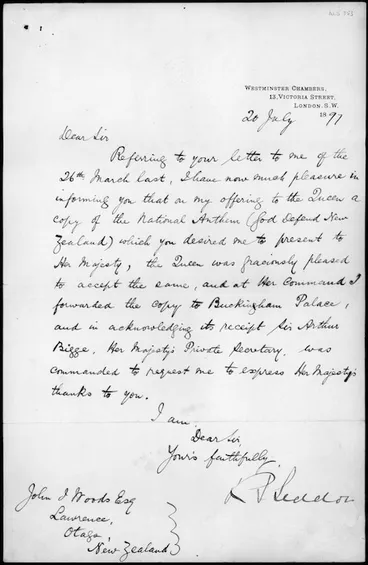 WESTMINSTER CHAMBERS,
13, VICTORIA STREET,
LONDON. S.W.
20 July 1897
Dear Sir
Referring to your letter to me of the
26th March last, I have now much pleasure in
informing you that on my offering to the Queen a
copy of the National Anthem (God Defend New
Zealand) which you desired me to present to
Her Majesty, the Queen was graciously pleased
to accept the same, and at Her Command I
forwarded the copy to Buckingham Palace,
and in acknowledging its receipt Sir Arthur
Bigge, Her Majesty's Private Secretary, was
commanded to request me to express Her Majesty's
thanks to you.
I am.
Dear Sir,
Yours faithfully
R J Seddon
John J Woods Esq
Lawrence,
Otago,
New Zealand